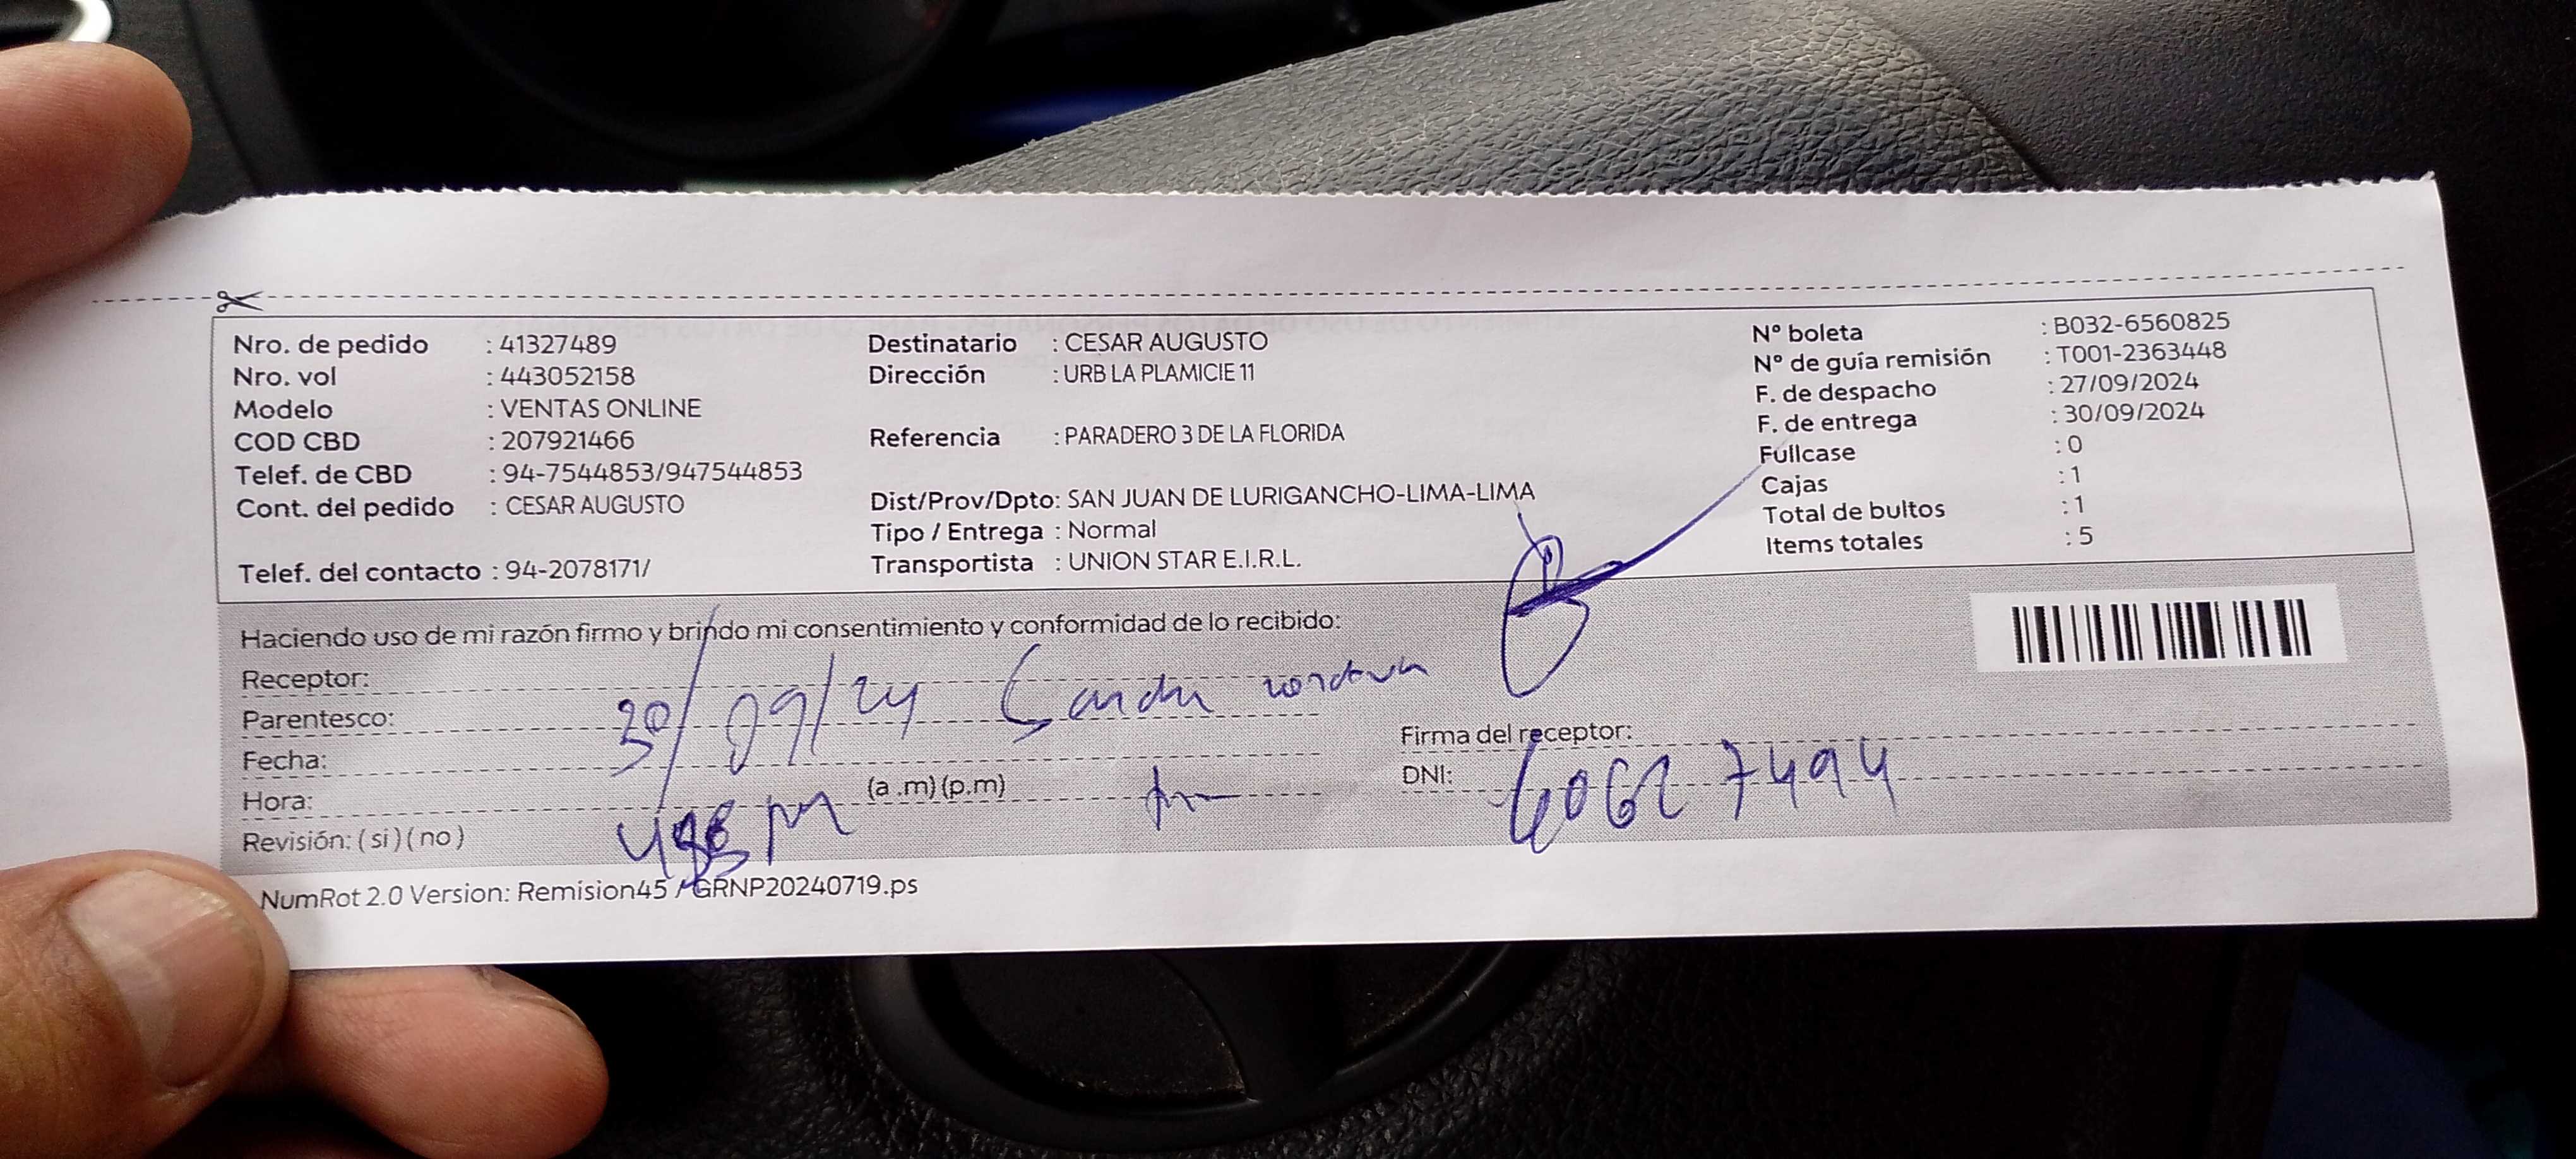 Nro. de pedido : 41327489
Nro. vol : 443052158
Modelo : VENTAS ONLINE
COD CBD : 207921466
Telef. de CBD : 94-7544853/947544853
Cont. del pedido : CESAR AUGUSTO
Telef. del contacto : 94-2078171/
Destinatario : CESAR AUGUSTO
Dirección : URB LA PLAMICIE 11
Referencia : PARADERO 3 DE LA FLORIDA
Dist/Prov/Dpto: SAN JUAN DE LURIGANCHO-LIMA-LIMA
Tipo / Entrega : Normal
Transportista : UNION STAR E.I.R.L.
N° boleta : B032-6560825
N° de guía remisión : T001-2363448
F. de despacho : 27/09/2024
F. de entrega : 30/09/2024
Fullcase : 0
Cajas : 1
Total de bultos : 1
Items totales : 5
Haciendo uso de mi razón firmo y brindo mi consentimiento y conformidad de lo recibido:
Receptor:
Parentesco:
30/09/24
Fecha:
Hora: (a .m) (p.m)
Revisión: ( si ) ( no ) pm
Firma del receptor:
DNI: 40627494
NumRot 2.0 Version: Remision45 / GRNP20240719.ps